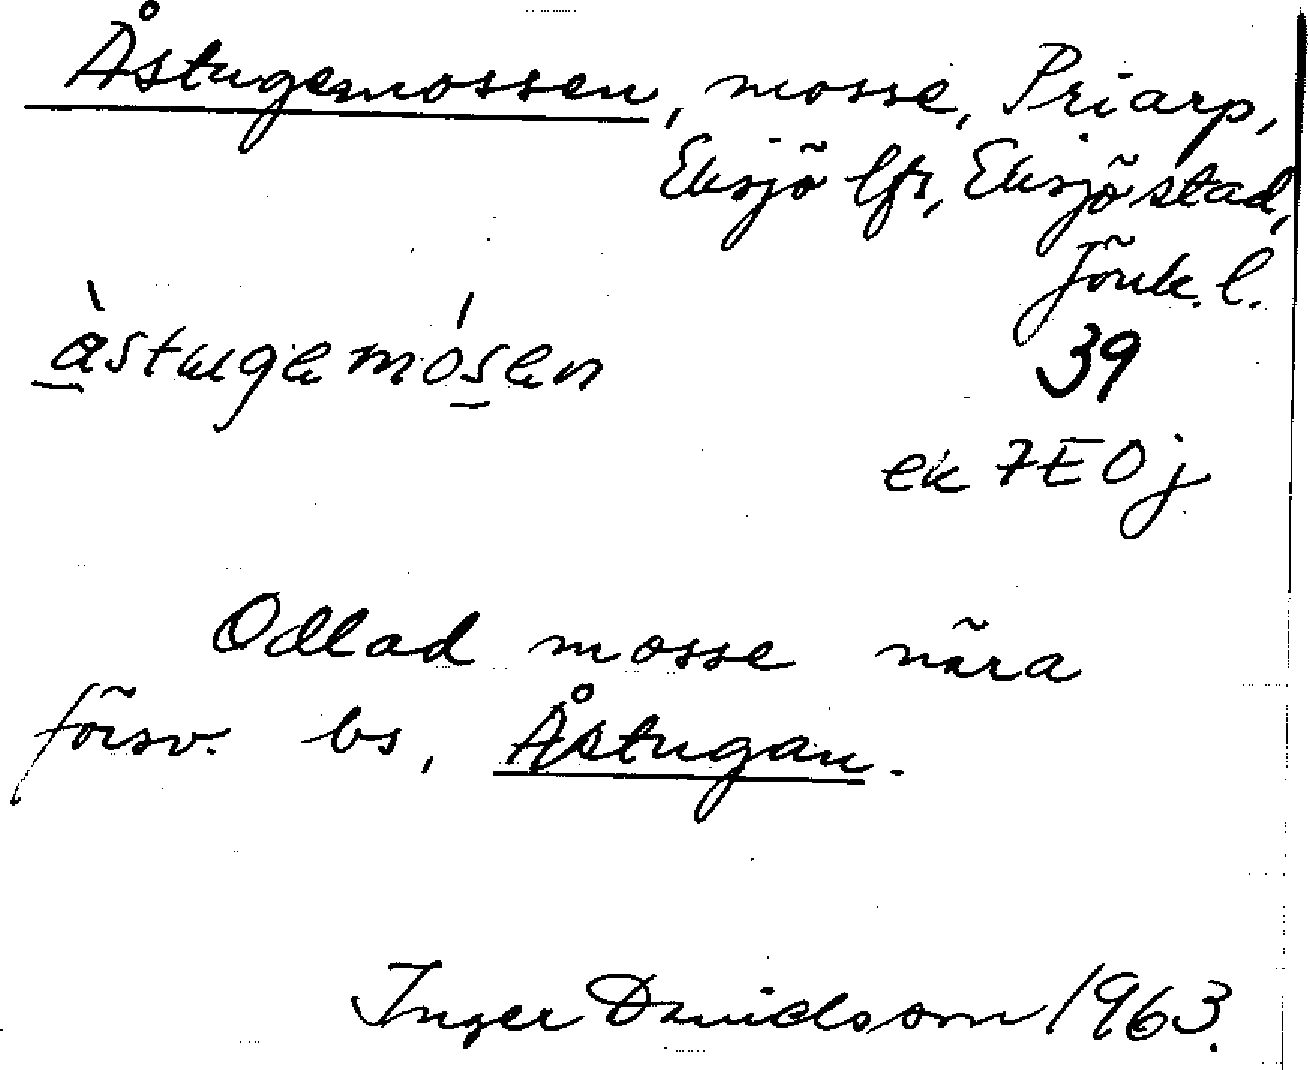 Åstugemossen, mosse, Priarp,
Eksjö lfs, Eksjö stad,
Jönk. l.
àstugemósen
39
ek 7E0j
Odlad mosse nära
försv. bs, Åstugan.
Inger Davidsson 1963.